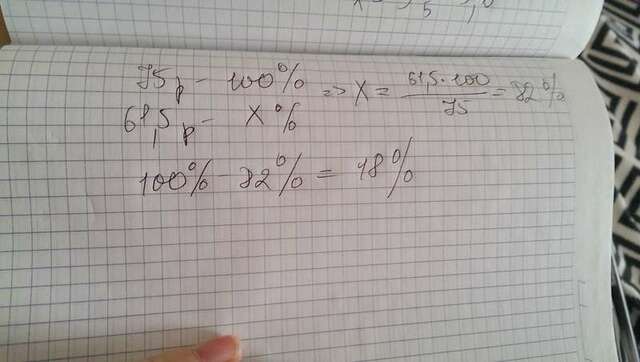 75 р – 100% => X = 61,5·100 / 75 = 82%
61,5 р – X%
100% – 82% = 18%